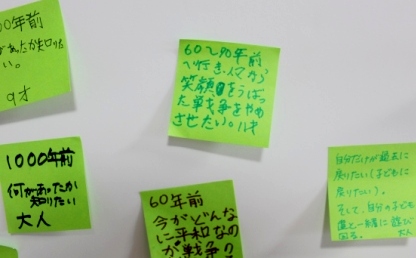 00年前
があったか知りた
い。
9才
60〜90年前
へ行き、人々から
笑顔をうばっ
た戦争をやめ
させたい。11才
1000年前
何があったか
知りたい
大人
60年前
今がどんな
に平和なの
か戦争?
自分だけが過去に
戻りたい(子どもに
戻りたい)。
そして、自分の子ども
達と一緒に遊び
大人